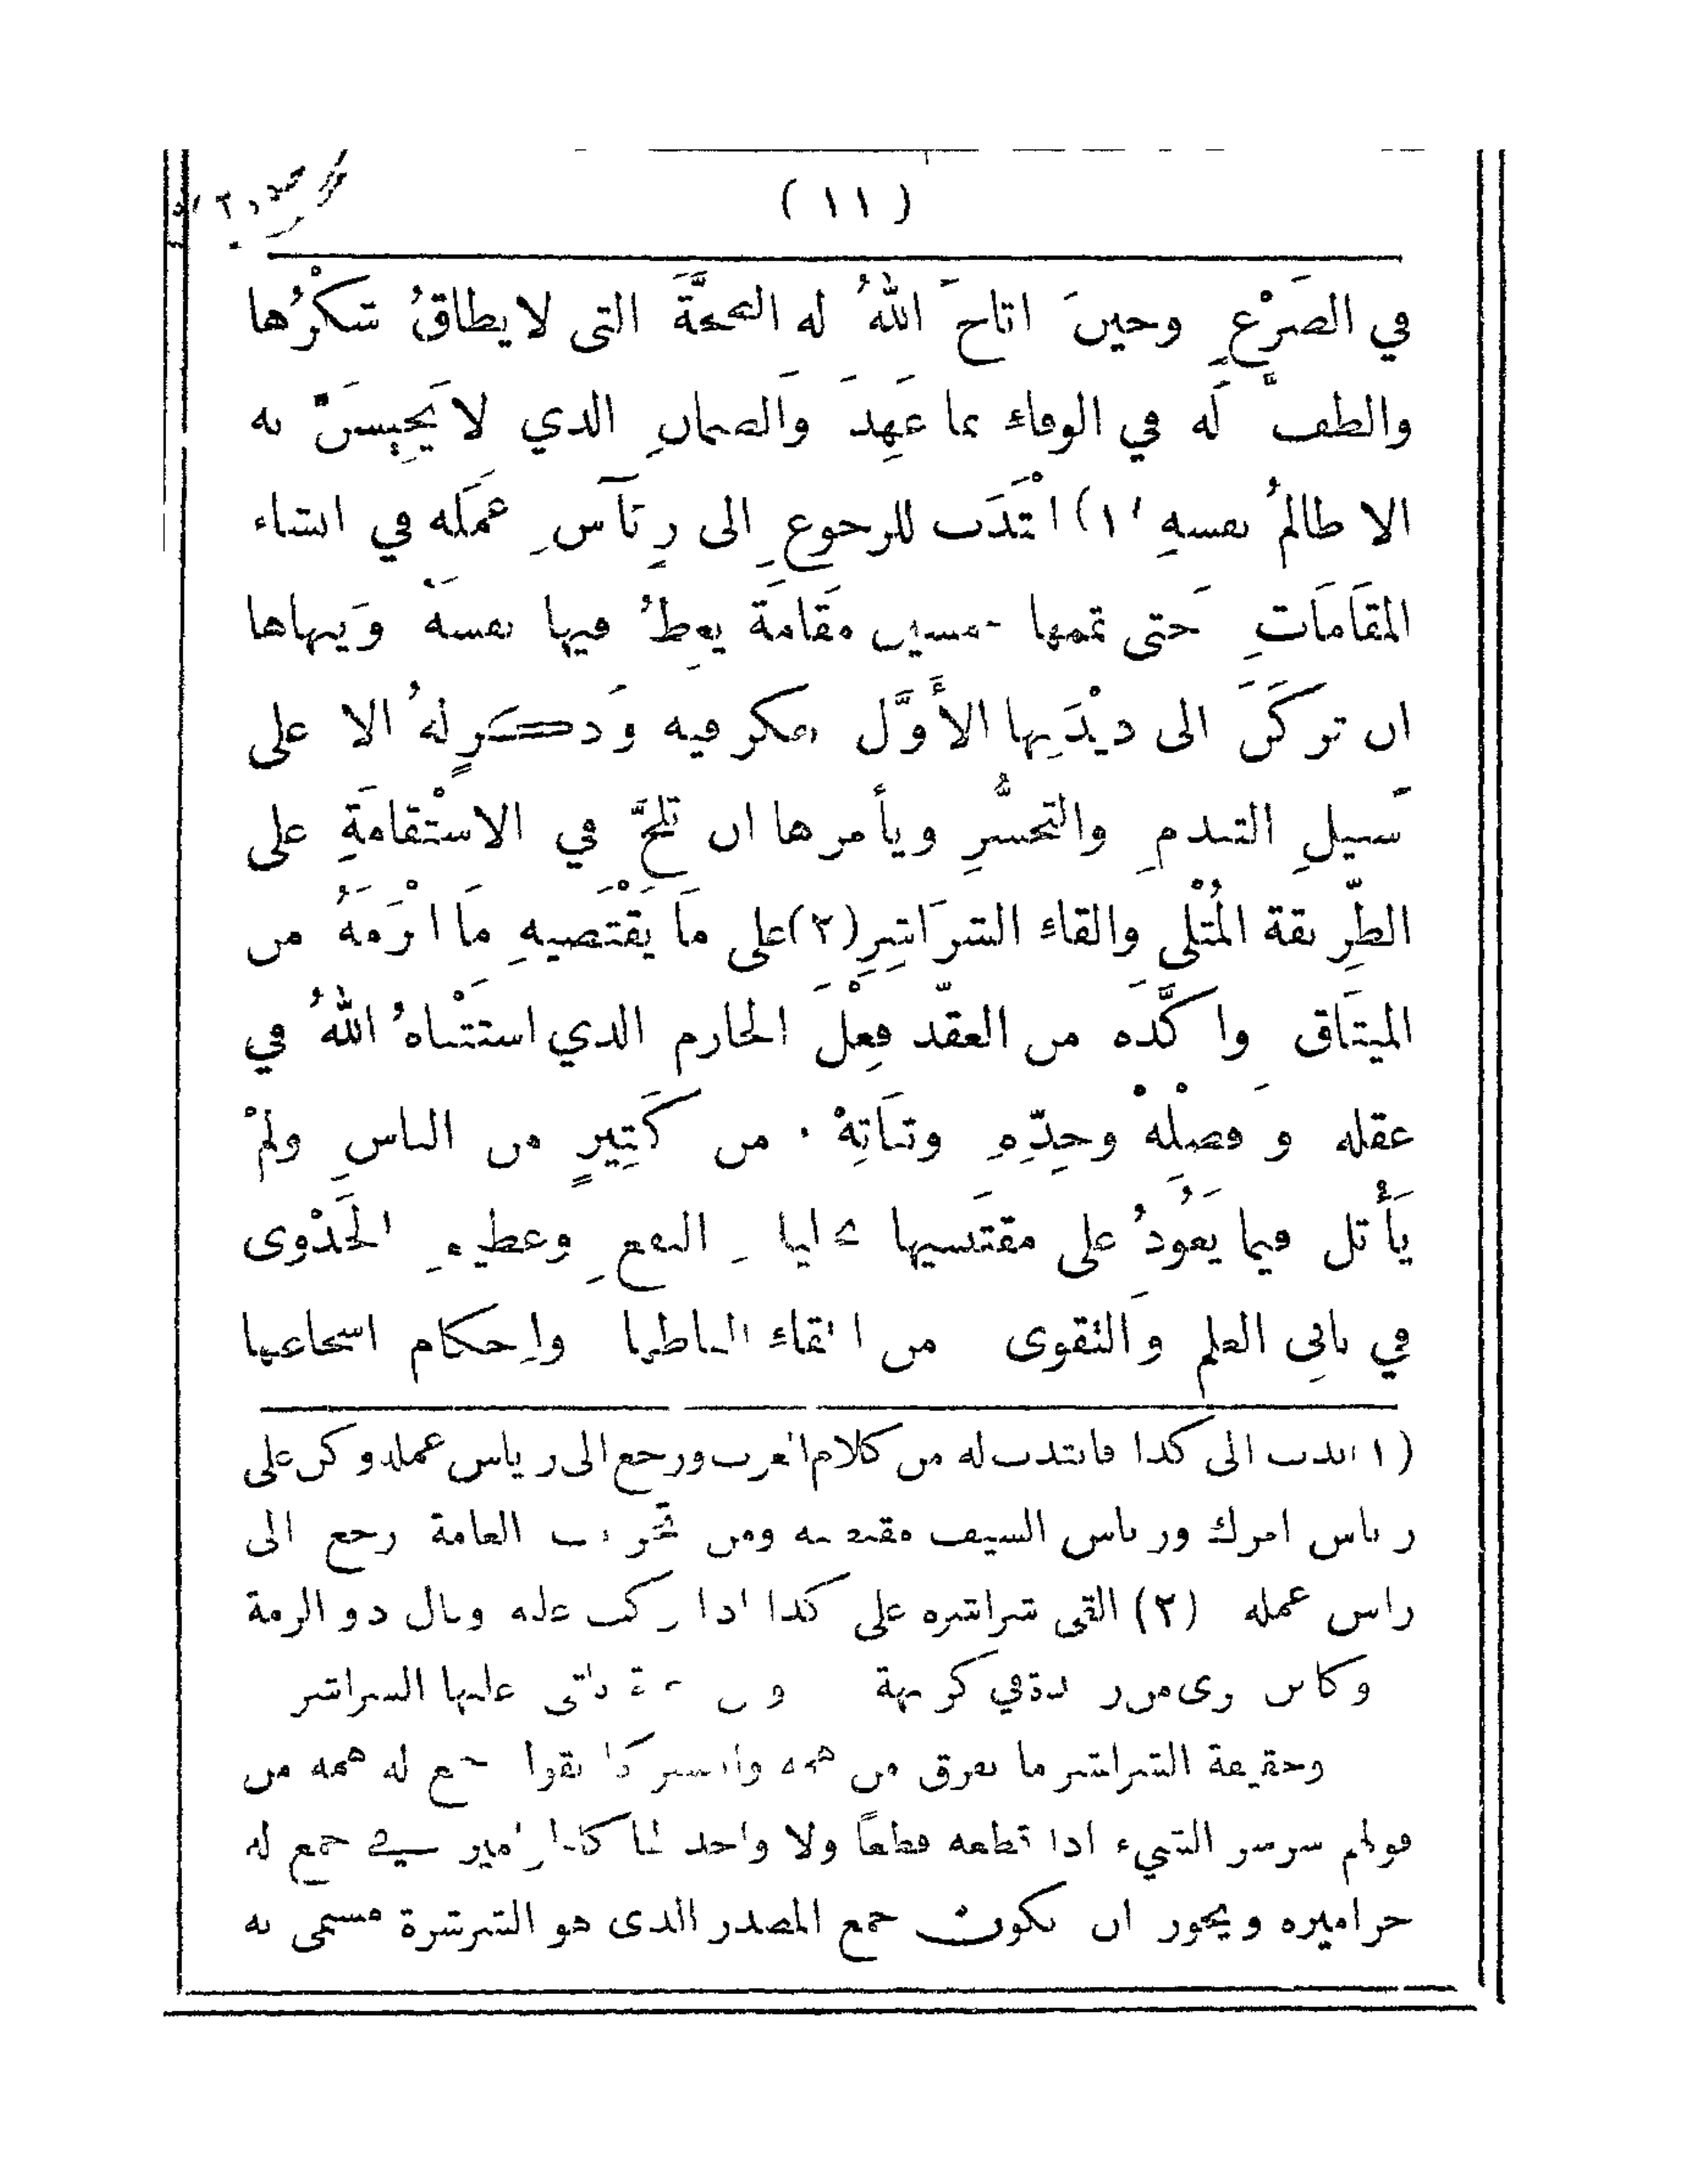 (١١)
في الضَرْعِ وحينَ اتاحَ اللهُ له الصحةَ التى لايطاقُ شكْرُها
والطفَ لَه في الوفاء بما عَهِدَ وَالضمانِ الذي لا يَخِيسَنّ به
الا ظالمُ نفسهِ (١) انْتَدَب للرجوعِ الى رِئآسِ عمَله في انشاء
المقَامَاتِ حَتى تممها خمسين مقَامَة يعظُ فيها نفسَهْ وَينهاها
ان تركَنَ الى ديْدَنِها الأَوَّل بفكر فيه وَذكرٍ لهُ الا على
سَبيلِ التندمِ والتحسُّرِ ويأمرها ان تلجَّ في الاسْتقامَةِ على
الطّرِيقة المُثْلى والقاء الشرَاشِرِ (٢) على مَا يَقْتَضيهِ مَا ابْرَمَهُ من
الميثَاق واكَّدَه من العقْد فِعْلَ الحازم الذي استثْناهُ اللهُ في
عقله وَفضْلِهْ وجِدِّهِ وثبَاتِهْ . من كَثِيرٍ من الناسِ ولمْ
يَأْتل فيما يَعُودُ على مقتَبسيها بجليل النفعِ وعظيمِ الجَدْوى
في بابِى العلم وَالتقوى من انتقاء الفاظها واِحكام اسجاعها
(١) ندب الى كذا فانتدب له من كلام العرب ورجع الى رياس عمله وكن على
رياس امرك ورياس السيف مقبضه ومن تحريف العامة رجع الى
راس عمله (٢) القى شراشره على كذا اذا ركب عليه وقال ذو الرمة
وكائن ترى من رشدة في كريهة ومن غية تلقى عليها الشراشر
وحقيقة الشراشر ما تفرق من همه وانتشر كما يقولون جمع له همه من
قولهم شرشر الشيء اذا قطعه قطعاً ولا واحد لها كالجزامير في جمع له
جراميزه ويجوز ان يكون جمع المصدر الذى هو الشرشرة مسمى به